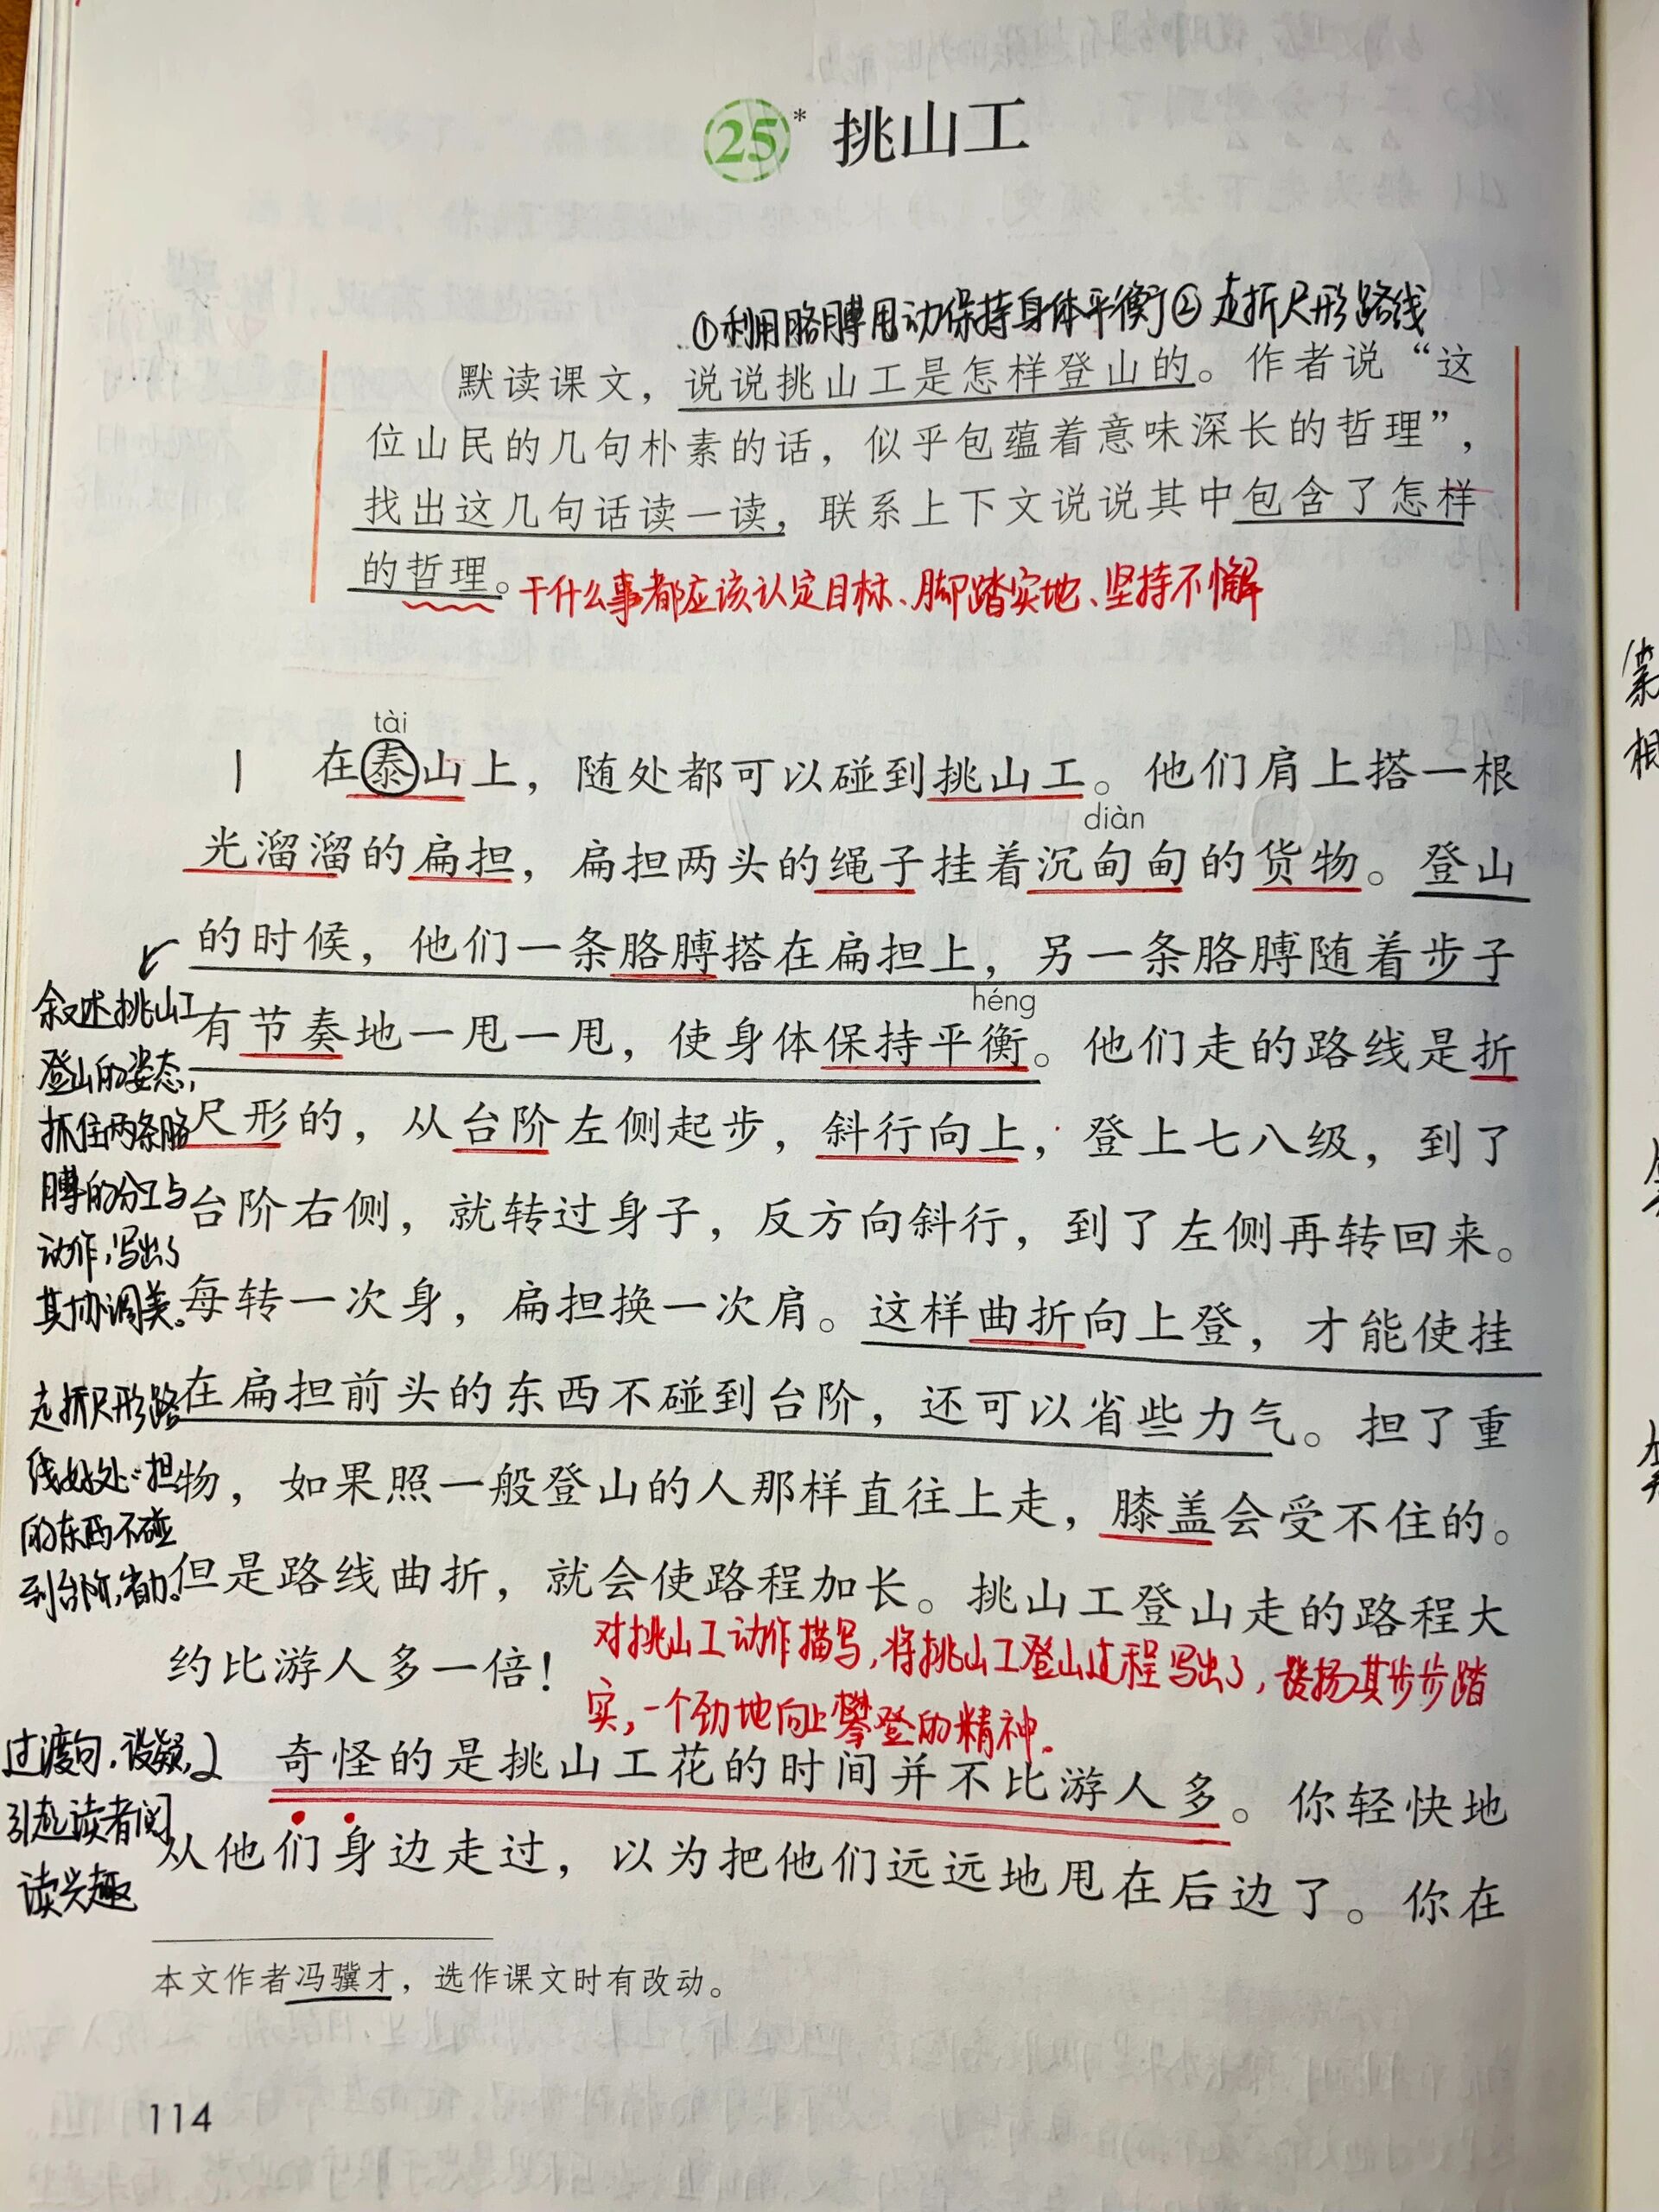 25* 挑山工
①利用胳膊甩动保持身体平衡②走折尺形路线
默读课文，说说挑山工是怎样登山的。作者说“这
位山民的几句朴素的话，似乎包蕴着意味深长的哲理”，
找出这几句话读一读，联系上下文说说其中包含了怎样
的哲理。
干什么事都应该认定目标、脚踏实地、坚持不懈
tài
1 在泰山上，随处都可以碰到挑山工。他们肩上搭一根
diàn
光溜溜的扁担，扁担两头的绳子挂着沉甸甸的货物。登山
的时候，他们一条胳膊搭在扁担上，另一条胳膊随着步子
héng
有节奏地一甩一甩，使身体保持平衡。他们走的路线是折
尺形的，从台阶左侧起步，斜行向上，登上七八级，到了
台阶右侧，就转过身子，反方向斜行，到了左侧再转回来。
每转一次身，扁担换一次肩。这样曲折向上登，才能使挂
在扁担前头的东西不碰到台阶，还可以省些力气。担了重
物，如果照一般登山的人那样直往上走，膝盖会受不住的。
但是路线曲折，就会使路程加长。挑山工登山走的路程大
约比游人多一倍！
叙述挑山工
登山的姿态，
抓住两条胳
膊的分工与
动作，写出了
其协调美。
走折尺形路
线好处：担
的东西不碰
到台阶，省力。
对挑山工动作描写，将挑山工登山过程写出了，赞扬其步步踏
实，一个劲地向上攀登的精神.
2 奇怪的是挑山工花的时间并不比游人多。你轻快地
从他们身边走过，以为把他们远远地甩在后边了。你在
过渡句，设疑，
引起读者阅
读兴趣
本文作者冯骥才，选作课文时有改动。
114